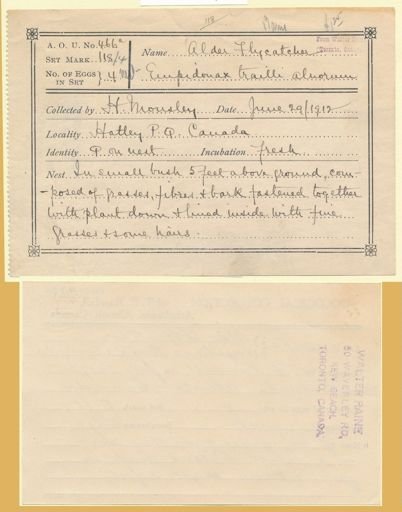 118
A. O. U. No. 466a
Name Alder Flycatcher
SET MARK 118/4
No. OF EGGS IN SET } 4
Empidonax trailli alnorum
Collected by H. Mousley Date June 29/1912
Locality Hatley P. Q. Canada
Identity P on nest Incubation fresh
Nest. In small bush 5 feet above ground, com-
-posed of grasses, fibres & bark fastened together
with plant down & lined inside with fine
grasses & some hairs.
WALTER RAINE
50 WAVERLEY RD,
KEW BEACH,
TORONTO, CANADA.